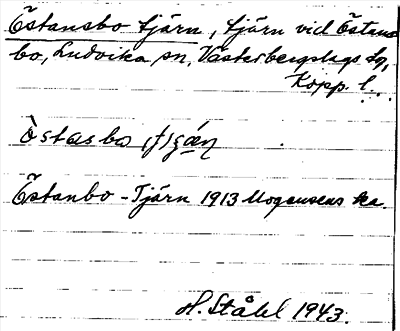 Östansbo tjärn, tjärn vid Östans
bo, Ludvika sn, Västerbergslags dn,
Kopp. l.
östasbo
Östanbo - Tjärn 1913 Mogensens ka.
H. Ståhl 1943.